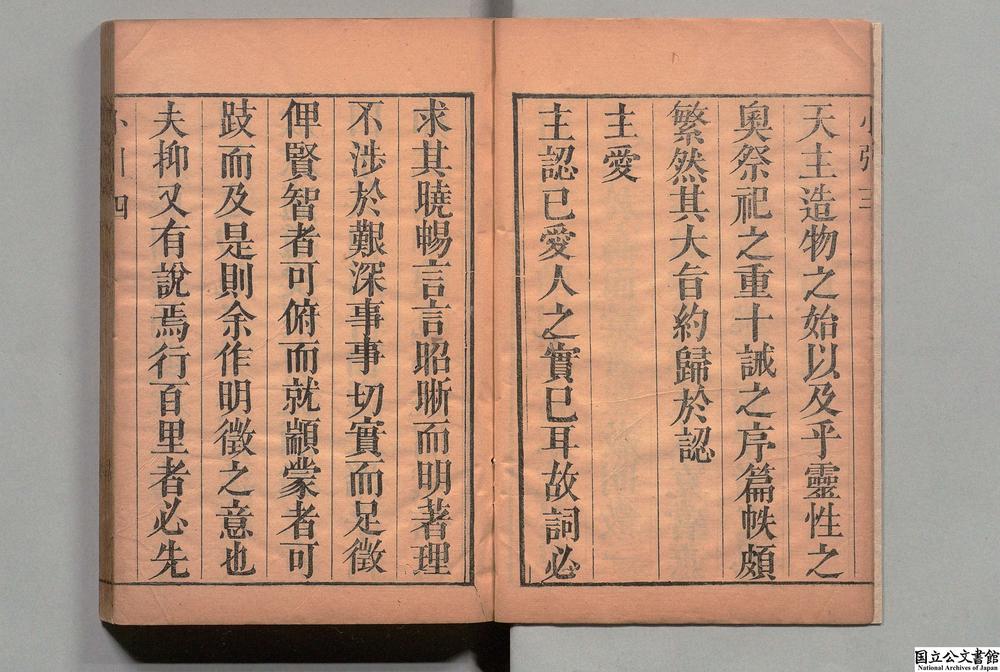 天主造物之始以及乎靈性之
奧祭祀之重十誡之序篇帙頗
繁然其大旨約歸於認
主愛
主認已愛人之實已耳故詞必
求其曉暢言言昭晰而明著理
不涉於艱深事事切實而足徵
俾賢智者可俯而就顓蒙者可
跂而及是則余作明徵之意也
夫抑又有說焉行百里者必先
国立公文書館
National Archives of Japan